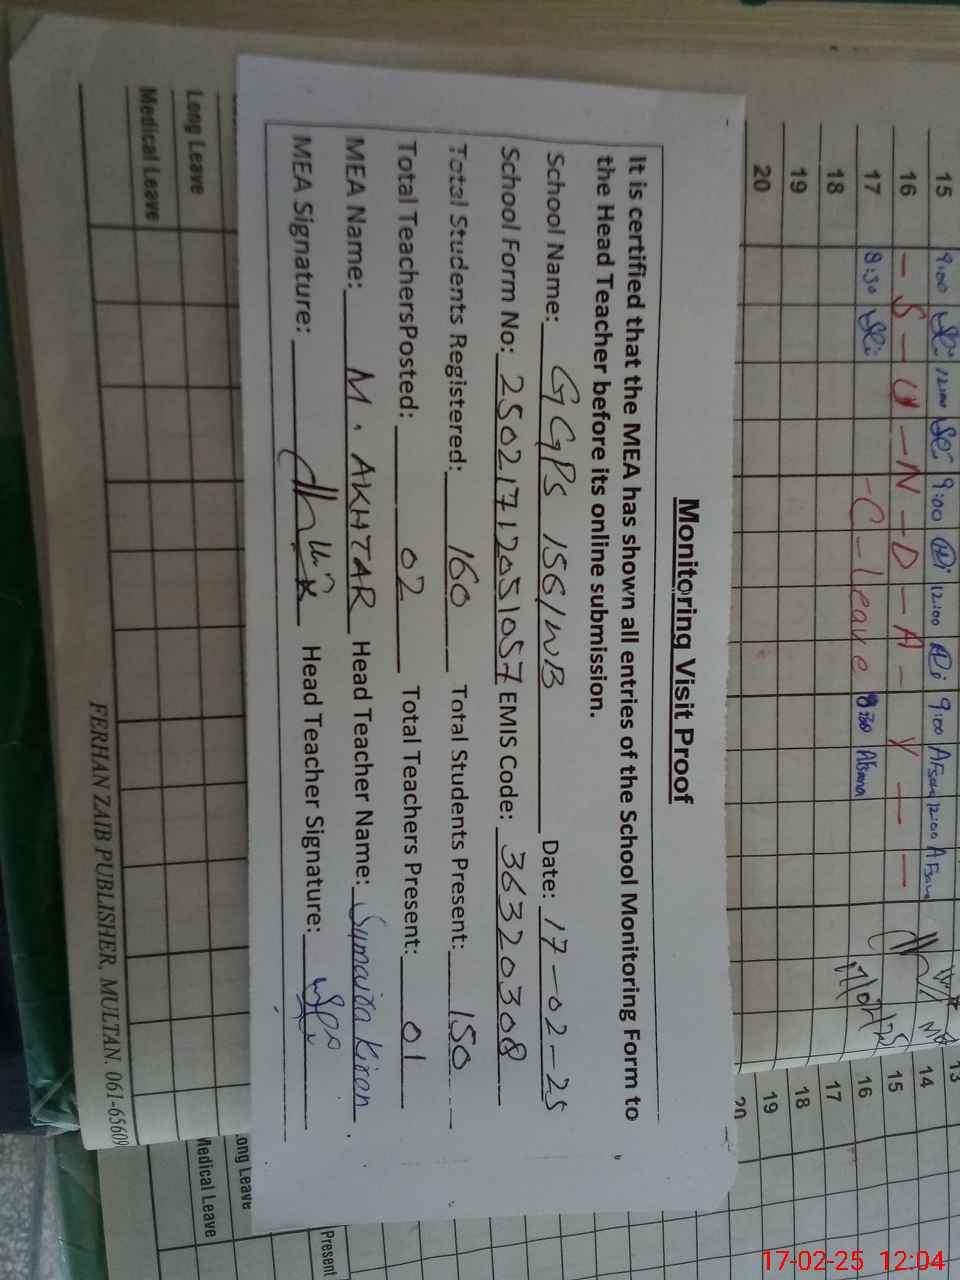 Monitoring Visit Proof
It is certified that the MEA has shown all entries of the School Monitoring Form to
the Head Teacher before its online submission.
School Name: GGPS 156/WB Date: 17-02-25
School Form No: 25021712051057 EMIS Code: 36320308
Total Students Registered: 160 Total Students Present: 150
Total TeachersPosted: 02 Total Teachers Present: 01
MEA Name: M. AKHTAR Head Teacher Name: Sumaira Kiran
MEA Signature: Head Teacher Signature:
15 9:00 12:00 9:00 12:00 9:00 Afsana 12:00 Afsana
16 - S - U - N - D - A - Y - -
17 8:30 - C - Leave 8:30 Afsana
18
19
20
17/02/25
Long Leave
Medical Leave
FERHAN ZAIB PUBLISHER, MULTAN. 061-65609
13
14
15
16
17
18
19
20
Long Leave
Medical Leave
Present
17-02-25 12:04